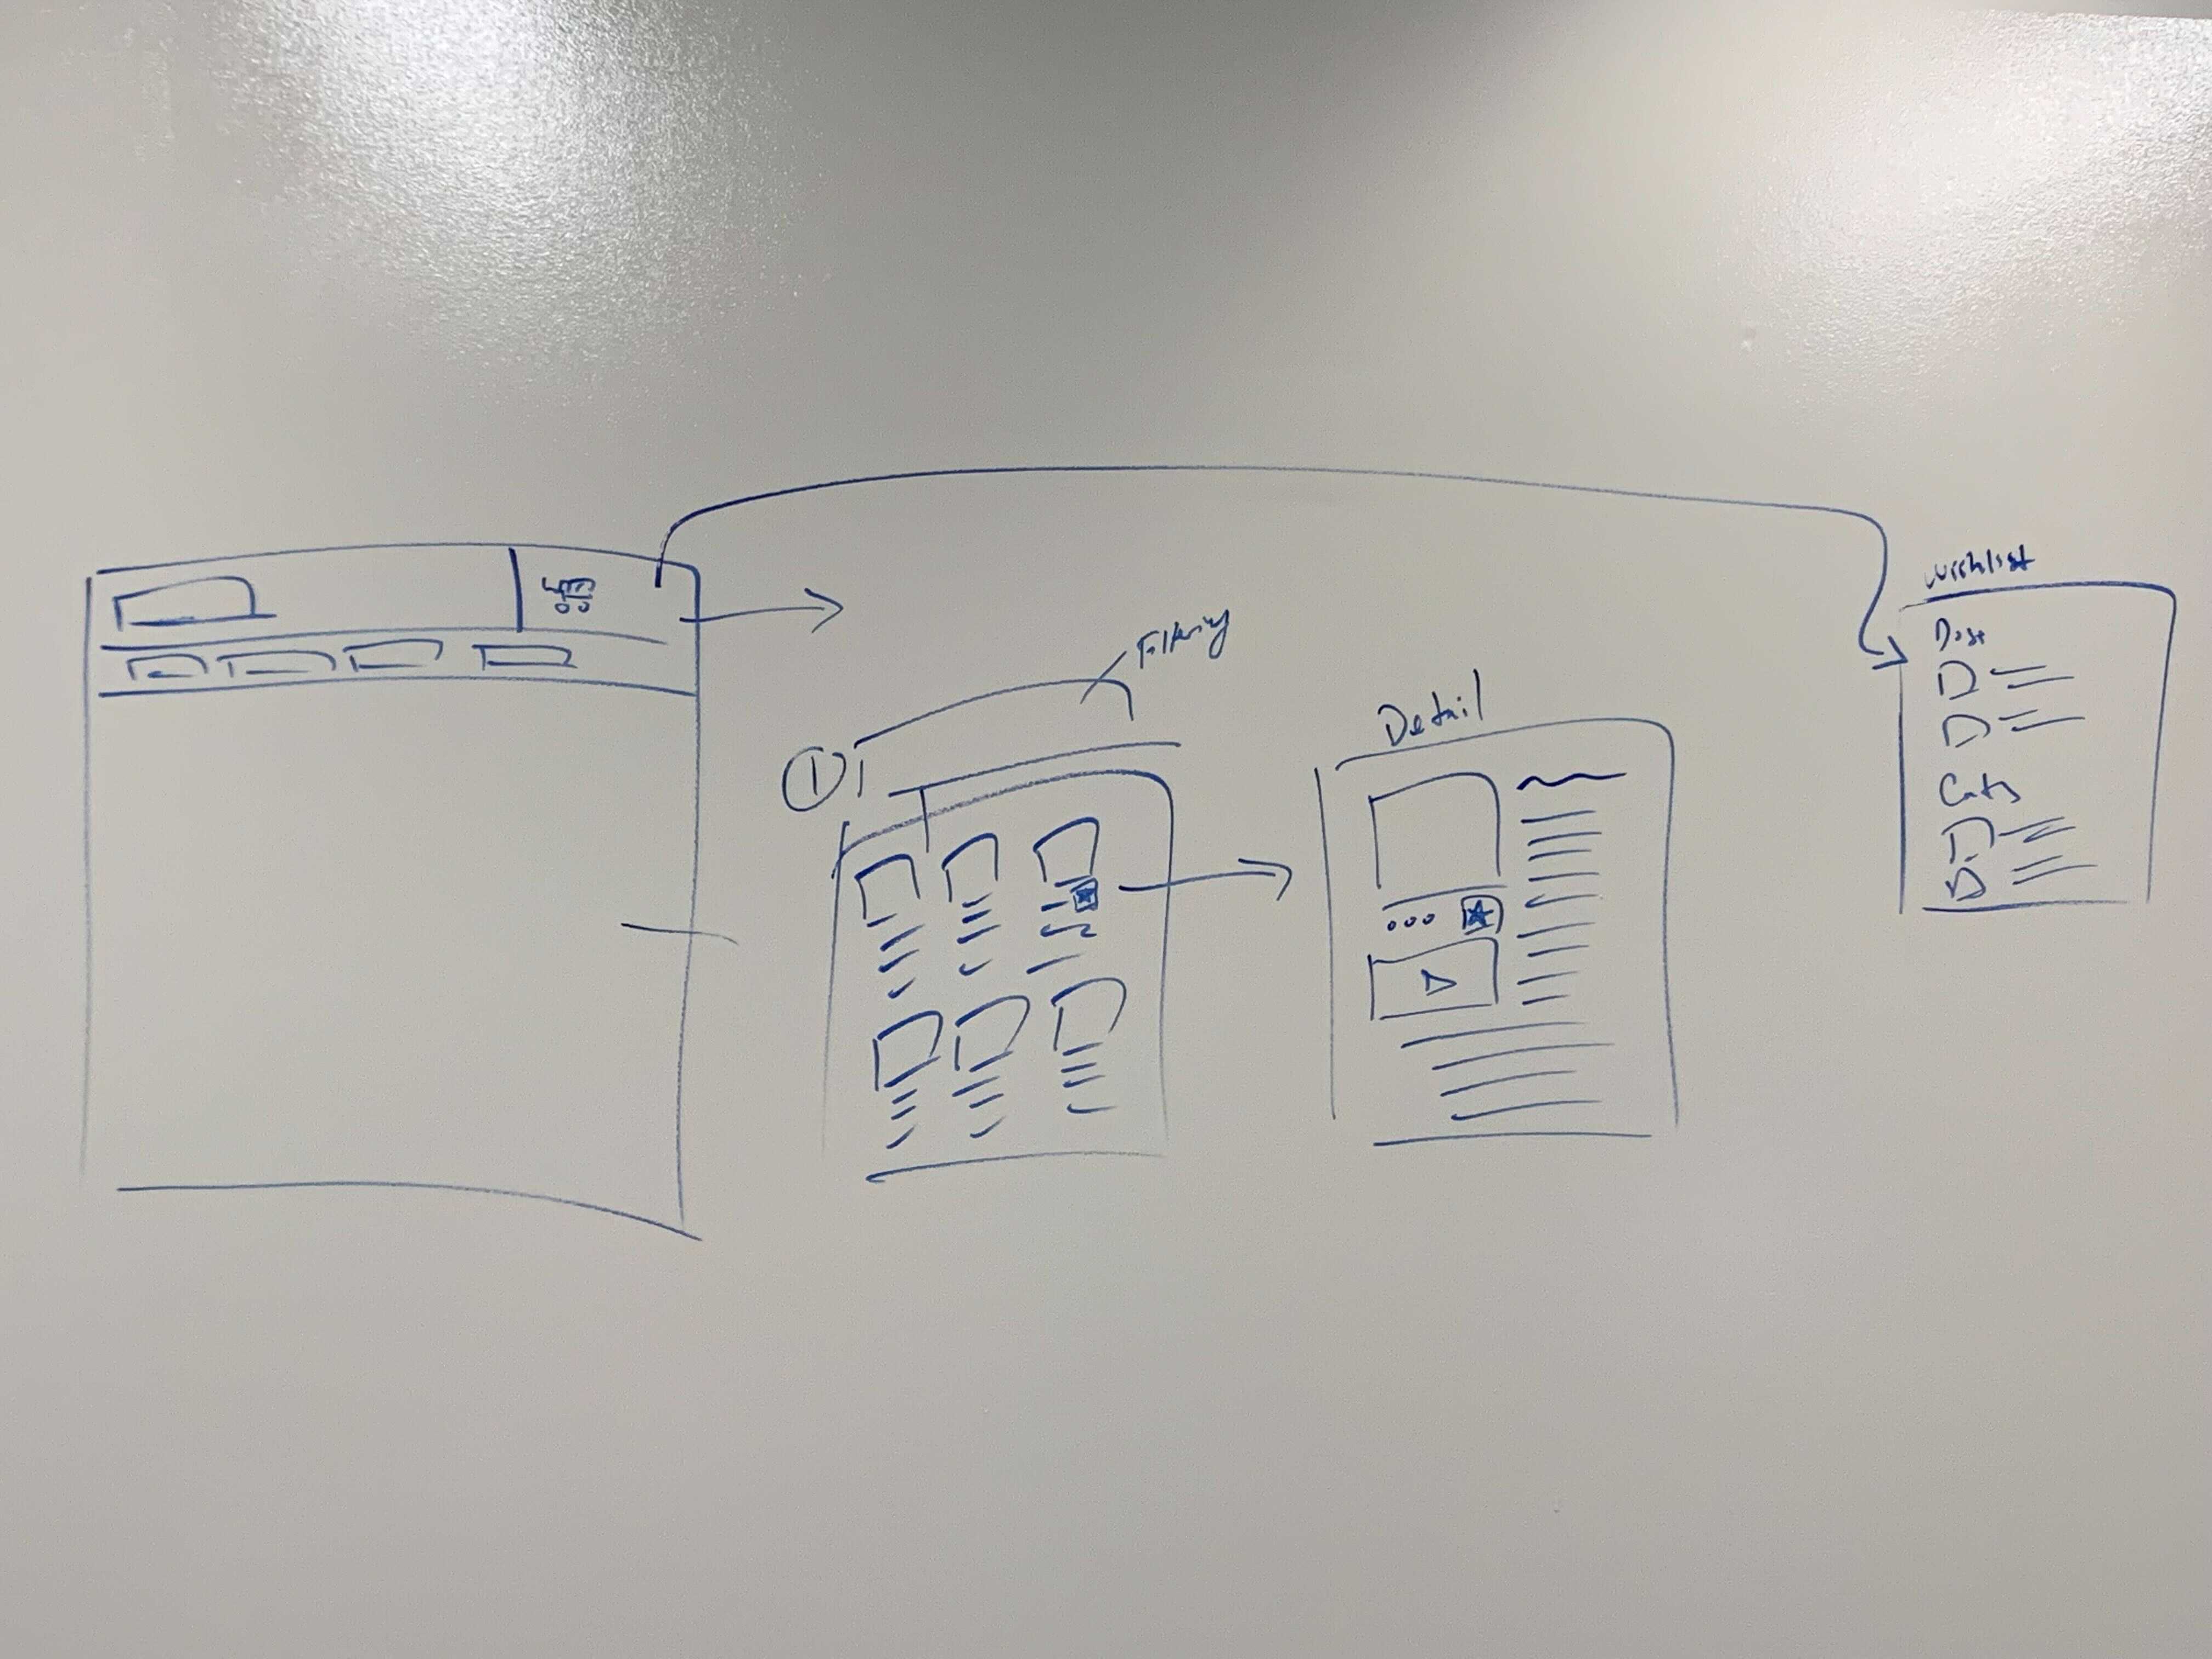 Filtering
①
Detail
Wishlist
Dogs
Cats